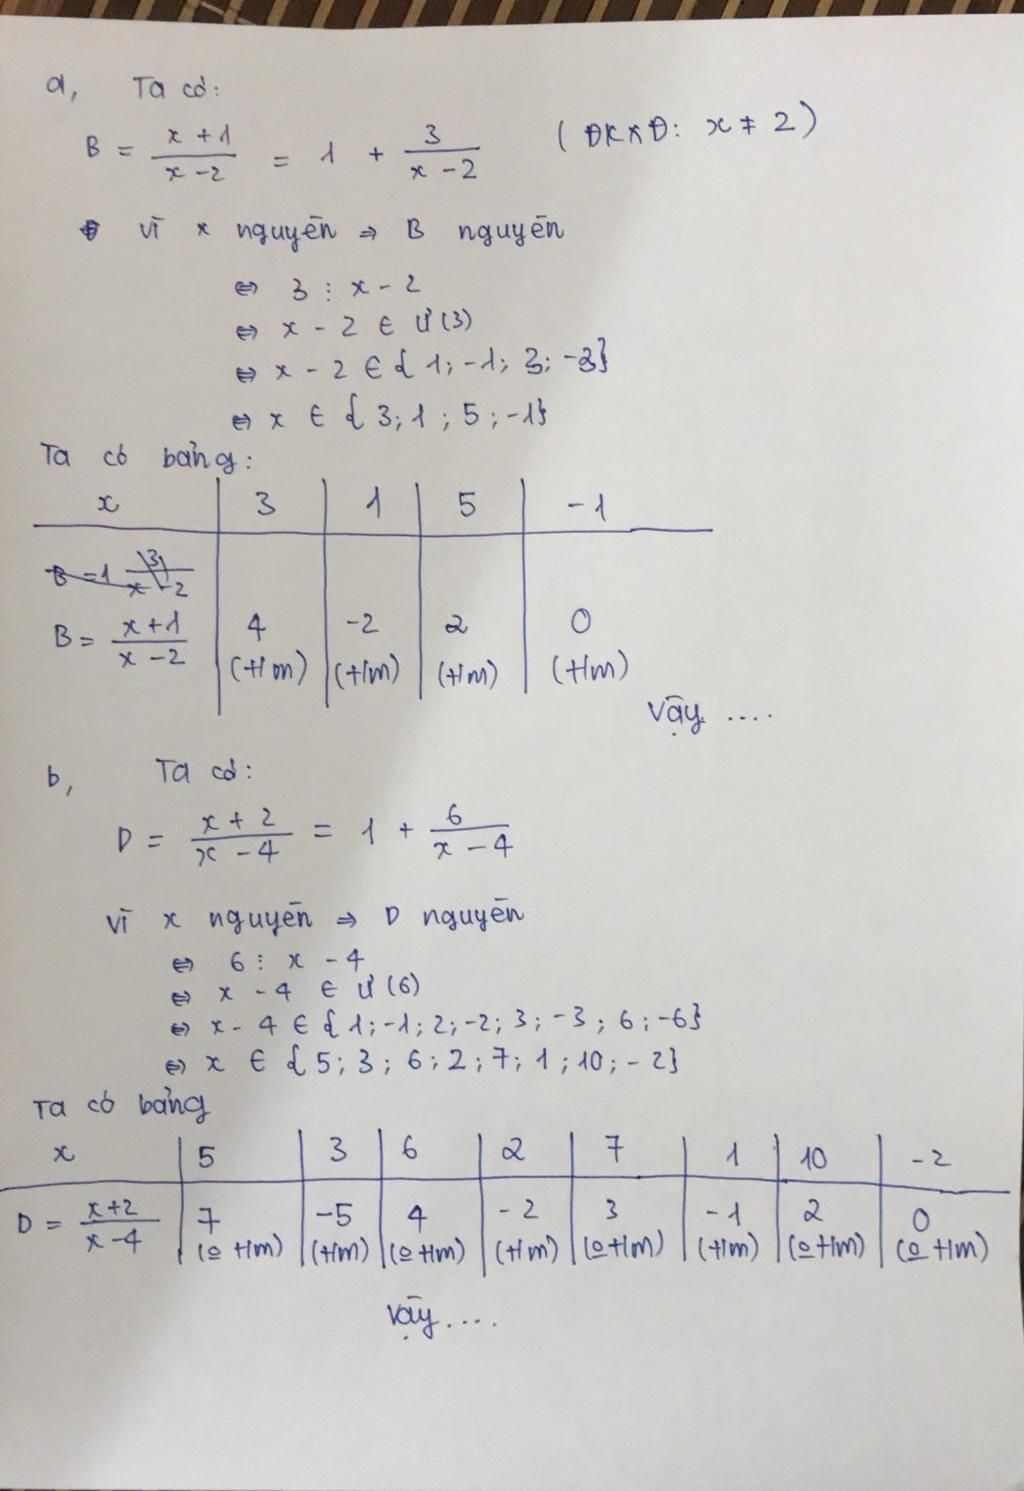 a, Ta có:
B = x+1/x-2 = 1 + 3/x-2 (ĐKXĐ: x ≠ 2)
vì x nguyên ⇒ B nguyên
⇔ 3 ⋮ x - 2
⇔ x - 2 ∈ Ư(3)
⇔ x - 2 ∈ {1; -1; 3; -3}
⇔ x ∈ {3; 1; 5; -1}
Ta có bảng:
x | 3 | 1 | 5 | -1
B = 1 3/x-2
B = x+1/x-2 | 4 | -2 | 2 | 0
(t/m) | (t/m) | (t/m) | (t/m)
Vậy ....
b, Ta có:
D = x+2/x-4 = 1 + 6/x-4
Vì x nguyên ⇒ D nguyên
⇔ 6 ⋮ x - 4
⇔ x - 4 ∈ Ư(6)
⇔ x - 4 ∈ {1; -1; 2; -2; 3; -3; 6; -6}
⇔ x ∈ {5; 3; 6; 2; 7; 1; 10; -2}
Ta có bảng
x | 5 | 3 | 6 | 2 | 7 | 1 | 10 | -2
D = x+2/x-4 | 7 | -5 | 4 | -2 | 3 | -1 | 2 | 0
(o t/m) | (t/m) | (o t/m) | (t/m) | (o t/m) | (t/m) | (o t/m) | (o t/m)
Vậy ....